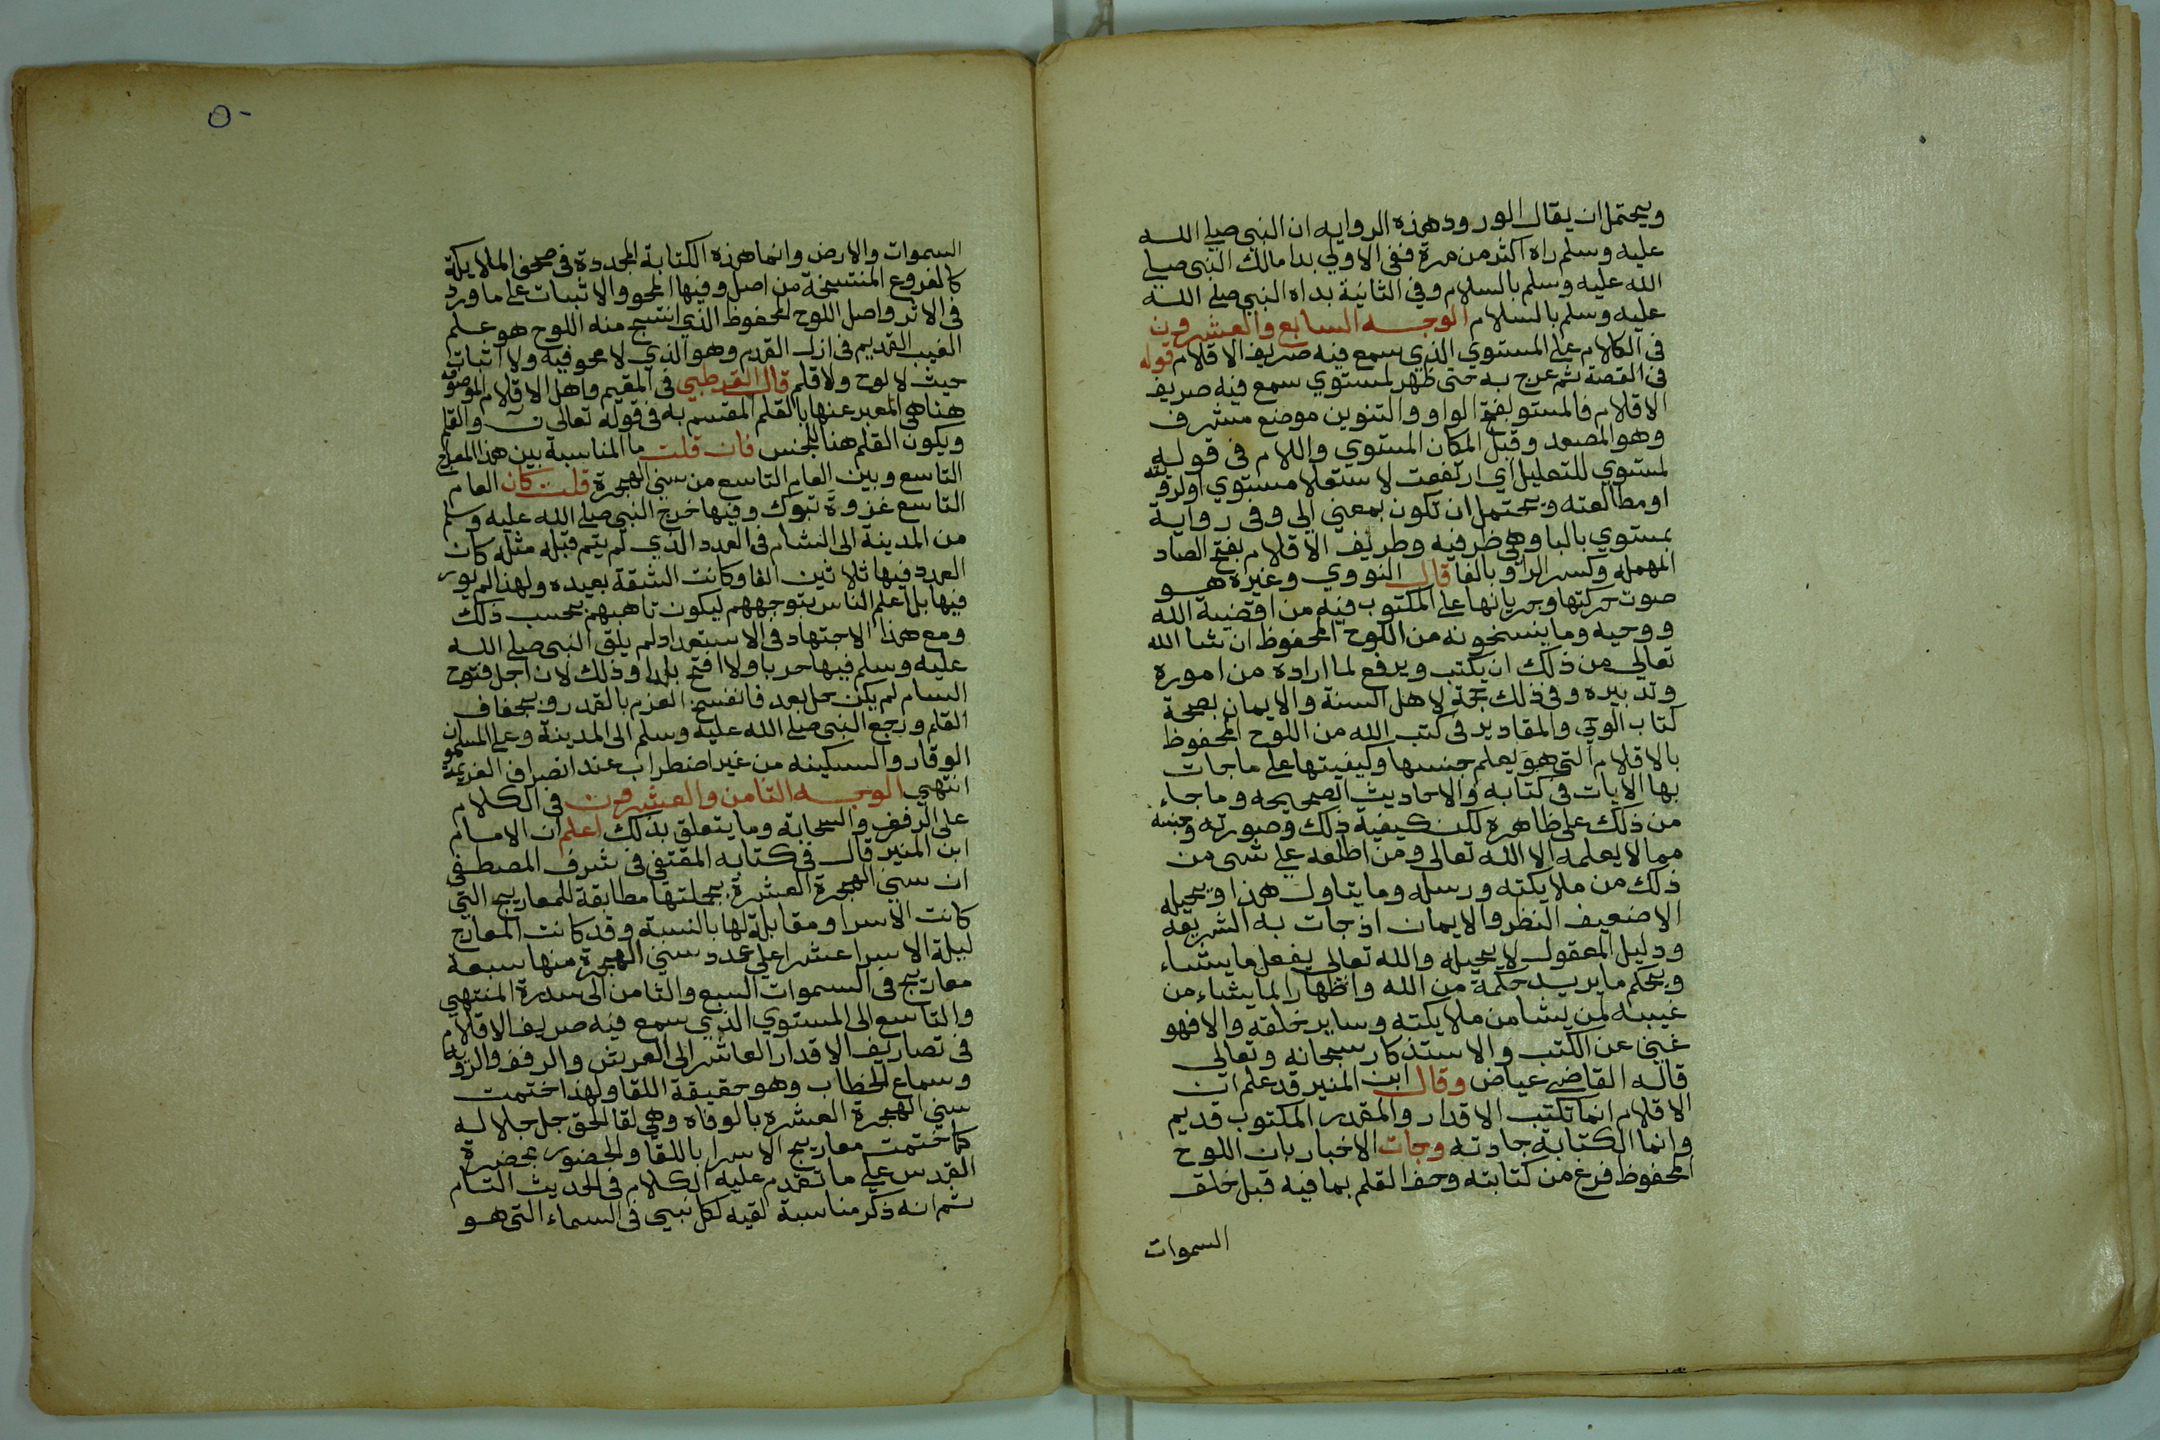 ويحتمل ان يقال لورود هذه الروايه ان النبي صلي الله
عليه وسلم راه اكثر من مرة ففي الاولي بدا مالك النبي صلي
الله عليه وسلم بالسلام وفي الثانية بداه النبي صلي الله
عليه وسلم بالسلام الوجه السابع والعشرون
في الكلام علي المستوي الذي سمع فيه صريف الاقلام قوله
في القصة ثم عرج به حتى ظهر لمستوي سمع فيه صريف
الاقلام فالمستو بفتح الواو والتنوين موضع مشرف
وهو المصعد وقيل المكان المستوي واللام في قوله
لمستوي للتعليل اي ارتفعت لاستعلا مستوي او لرويته
او مطالعته ويحتمل ان تكون بمعني الي وفي رواية
بمستوي بالبا وهي ظرفيه وطريف الاقلام بفتح الصاد
المهمله وكسر الرا وبالفا قال النووي وغيره هو
صوت حركتها وجريانها علي المكتوب فيه من اقضية الله
ووحيه وما ينسخونه من اللوح المحفوظ ان شا الله
تعالي من ذلك ان يكتب ويرفع لما اراده من اموره
وتدبيره وفي ذلك حجة لاهل السنة والايمان بصحة
كتاب الوحي والمقادير في كتب الله من اللوح المحفوظ
بالاقلام التي هو يعلم جنسها وكيفيتها علي ما جات
بها الايات في كتابه والاحاديث الصحيحه وما جاء
من ذلك على ظاهره لكن كيفية ذلك وصورته وجنسه
مما لا يعلمه الا الله تعالى ومن اطلعه علي شي من
ذلك من ملايكته ورسله وما يتاول هذا او يحيله
الا ضعيف النظر والايمان اذ جات به الشريعة
ودليل المعقول لا يحيله والله تعالى يفعل ما يشاء
ويحكم ما يريد حكمة من الله واظهارا لما يشاء من
غيبه لمن يشا من ملايكته وساير خلقه والا فهو
غني عن الكتب والاستذكار سبحانه وتعالى
قاله القاضي عياض وقال ابن المنير قد علم ان
الاقلام انما تكتب الاقدار والمقدر المكتوب قديم
وانما الكتابة حادثه وجات الاخبار بان اللوح
المحفوظ فرغ من كتابته وجف القلم بما فيه قبل خلق
السموات
٥٠
السموات والارض وانما هذه الكتابة المجددة في صحف الملايكة
كالفروع المنتسخة من اصل وفيها المحو والاثبات علي ما ورد
في الاثر واصل اللوح المحفوظ الذي انتسخ منه اللوح هو علم
الغيب القديم في ازل القدم وهو الذي لا محو فيه ولا اثبات
حيث لا لوح ولا قلم قال القرطبي في المفهم وهل الاقلام الموصوفه
هنا هي المعبر عنها بالقلم المقسم به في قوله تعالى ن والقلم
ويكون القلم هنا للجنس فان قلت ما المناسبة بين هذا المعراج
التاسع وبين العام التاسع من سني الهجرة قلت كان العام
التاسع غزوة تبوك وفيها خرج النبي صلي الله عليه وسلم
من المدينة الى الشام في العدد الذي لم يتم قبله مثله كان
العدد فيها ثلاثين الفا وكانت الشقة بعيده ولهذا لم يور
فيها بل اعلم الناس بتوجههم ليكون تاهبهم بحسب ذلك
ومع هذا الاجتهاد في الاستعداد لم يلق النبي صلي الله
عليه وسلم فيها حربا ولا افتتح بلدا وذلك لان اجل فتوح
السام لم يكن حل بعد فانفسخ العزم بالقدر وبجفاف
القلم ورجع النبي صلي الله عليه وسلم الى المدينة وعلي المسلمون
الوقار والسكينه من غير اضطراب عند انصراف العزيمة
انتهي الوجه الثامن والعشرون في الكلام
على الرفرف والسحابة وما يتعلق بذلك اعلم ان الامام
ابن المنير قال في كتابه المقتفي في شرف المصطفي
ان سني الهجرة العشرة بجملتها مطابقة للمعاريج التي
كانت الاسرا ومقابلة لها بالنسبة وقد كانت المعارج
ليلة الاسرا عشرا علي عدد سني الهجرة منها سبعة
معاريج في السموات السبع والثامن الى سدرة المنتهي
والتاسع الى المستوي الذي سمع فيه صريف الاقلام
في تصاريف الاقدار العاشر الى العرش والرفرف والرويه
وسماع الخطاب وهو حقيقة اللقا ولهذا ختمت
سني الهجرة العشره بالوفاه وهي لقا الحق جل جلاله
كما ختمت معاريج الاسرا باللقا والحضور بحضرة
القدس علي ما تقدم عليه الكلام في الحديث التام
ثم انه ذكر مناسبة لقيه لكل نبي في السماء التي هو